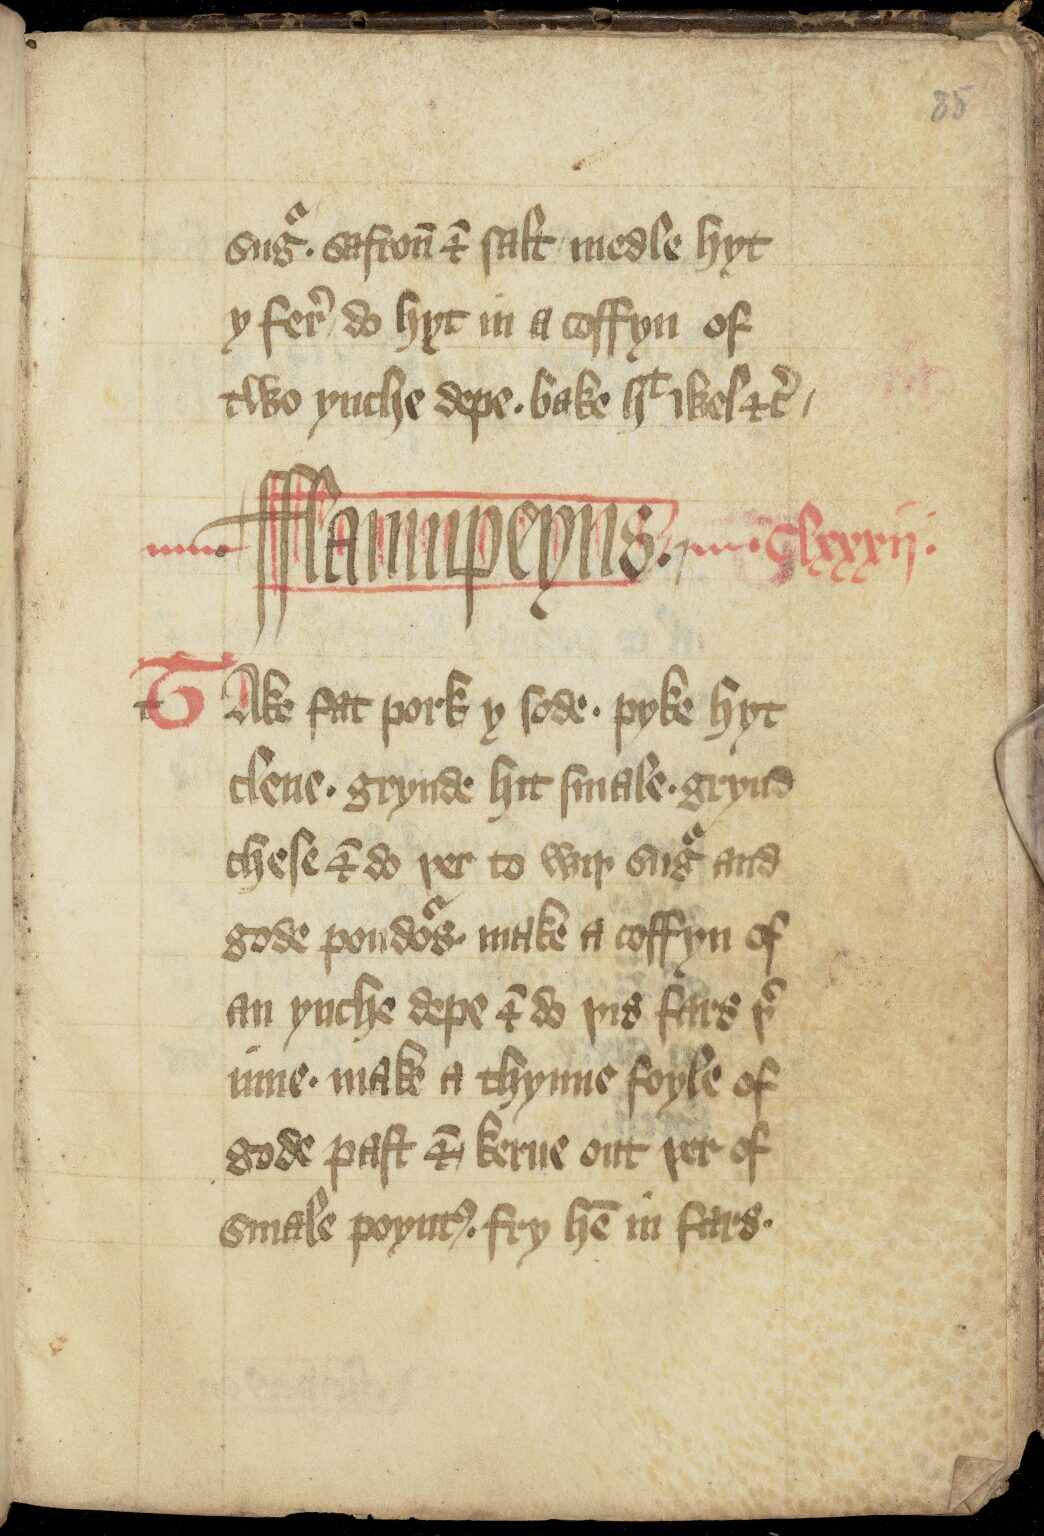 85
sugᷓ. safron̄ & salt medle hyt
y fer̉ do hyt in a coffyn of
two ynche depe. bake hᵗ wel ⁊c̉
fflaumpeyns. C lxxxiij.
TAke fat pork y sode. pyke hyt
clene. grynde hit smale. grynd
chese & do þer to wiþ sugᷓ and
gode poudoᷣs. make a coffyn of
an ynche depe & do þis fars þ̉
inne. make a thynne foyle of
gode past & kerue out þer of
smale poyntꝭ. fry hē in fars.